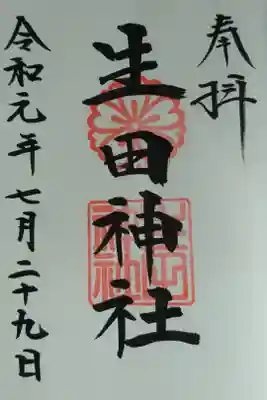 奉拝
生田神社
令和元年七月二十九日